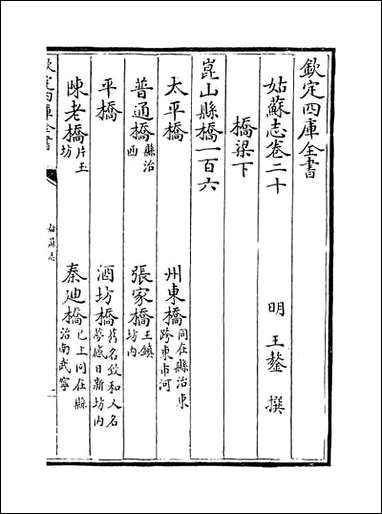 欽定四庫全書
姑蘇志卷二十
明 王鏊 撰
橋梁下
崑山縣橋一百六
太平橋 州東橋 同在縣治東跨東市河
普通橋 縣治西 張家橋 王鎮坊内
平橋 酒坊橋 舊名致和人名夢感日新坊内
陳老橋 片玉坊 秦迪橋 已上同在縣治南武寧
欽定四庫全書
姑蘇志
一